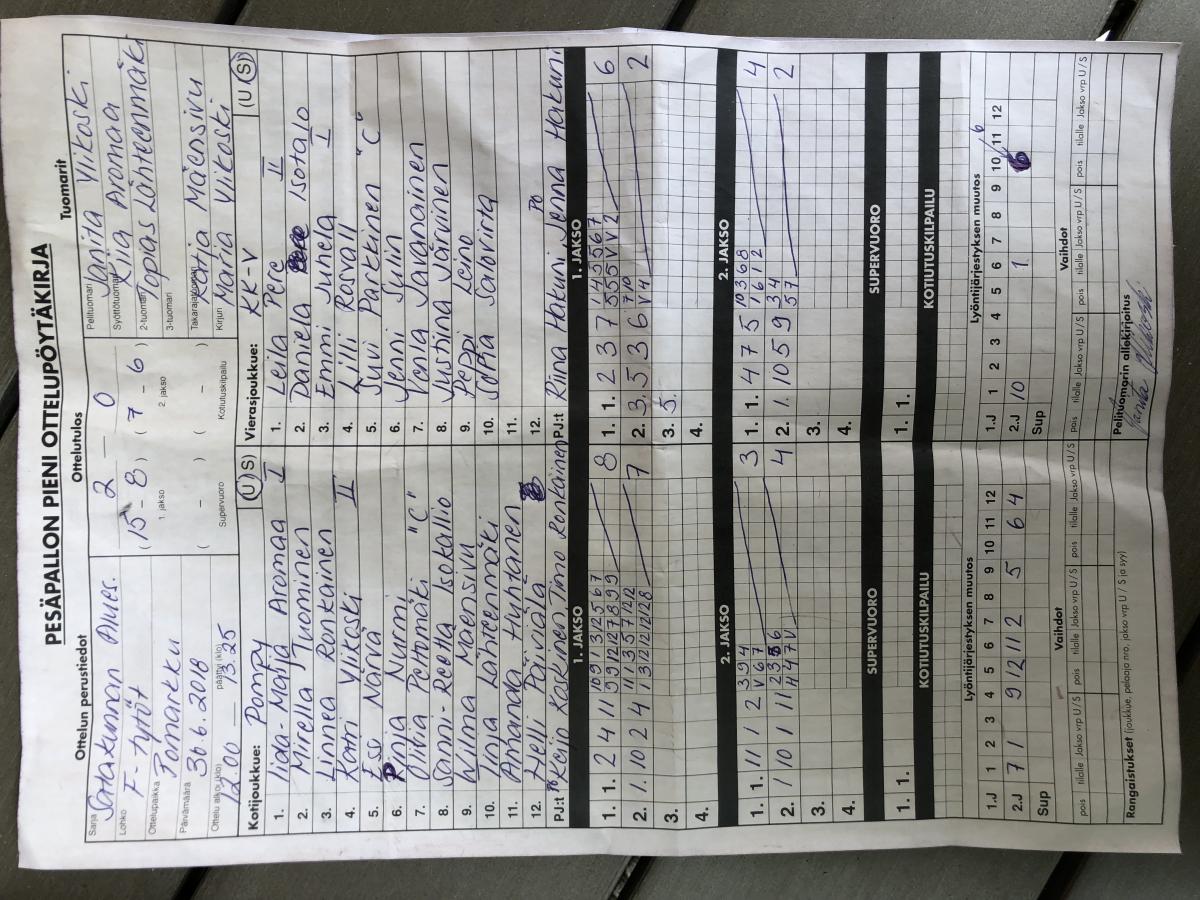 PESÄPALLON PIENI OTTELUPÖYTÄKIRJA
Ottelun perustiedot
Sarja Satakunnan Alues.
Lohko F-tytöt
Ottelupaikka Pomarkku
Päivämäärä 30 6.2018
Ottelu alkoi (klo) päättyi (klo)
12.00 — 13.25
Ottelutulos
2 — 0
( 15 - 8 ) ( 7 - 6 )
1. jakso 2. jakso
( - ) ( - )
Supervuoro Kotiutuskilpailu
Tuomarit
Pelituomari Janita Viikoski
Syöttötuomari Kiia Aromaa
2-tuomari Topias Lähteenmäki
3-tuomari
Takarajatuomari Katja Mäensivu
Kirjuri Maria Viikoski
Kotijoukkue: Pompy (U S)
1. Iida-Maija Aromaa I
2. Mirella Tuominen
3. Linnea Ronkainen
4. Katri Viikoski II
5. Essi Närä
6. Ronja Nurmi
7. Oliia Peltomäki "C"
8. Sanni-Reetta Isokallio
9. Wilma Mäensivu
10. Tinja Lähteenmäki
11. Amanda Huhtanen
12. Helli Päivialä
PJ:t Keijo Koskinen Timo Ronkainen
Vierasjoukkue: KK-V (U S)
1. Leila Pere II
2. Daniela Isotalo
3. Emmi Junela I
4. Lilli Rosvall
5. Suvi Parkkinen "C"
6. Jenni Sulin
7. Vonla Savanainen
8. Justina Järvinen
9. Peppi Leino
10. Sofia Salovirta
11.
12.
PJ:t Riina Hakuni Jenna Hakuni
1. JAKSO 1. JAKSO
1. 1. 2 4 11 8
1. 1. 2 3 7 6
2. 1. 10 2 4 7
2. 3. 5 3 6 2
3.
3. 5.
4.
4.
2. JAKSO 2. JAKSO
1. 1. 11 1 2 3
1. 1. 4 7 5 4
2. 1 10 1 11 4
2. 1. 10 5 9 2
3.
3.
4.
4.
SUPERVUORO SUPERVUORO
1. 1.
1. 1.
KOTIUTUSKILPAILU KOTIUTUSKILPAILU
Lyöntijärjestyksen muutos
1 2 3 4 5 6 7 8 9 10 11 12
1.J
2.J 7 1 9 12 11 2 5 6 4
Sup
Lyöntijärjestyksen muutos
1 2 3 4 5 6 7 8 9 10 11 12
1.J
2.J 10 1 6
Sup
Vaihdot
pois tilalle Jakso vrp U / S pois tilalle Jakso vrp U / S pois tilalle Jakso vrp U / S
Vaihdot
pois tilalle Jakso vrp U / S pois tilalle Jakso vrp U / S pois tilalle Jakso vrp U / S
Rangaistukset (joukkue, pelaaja nro, jakso vrp U / S ja syy)
Pelituomarin allekirjoitus
Janita Viikoski